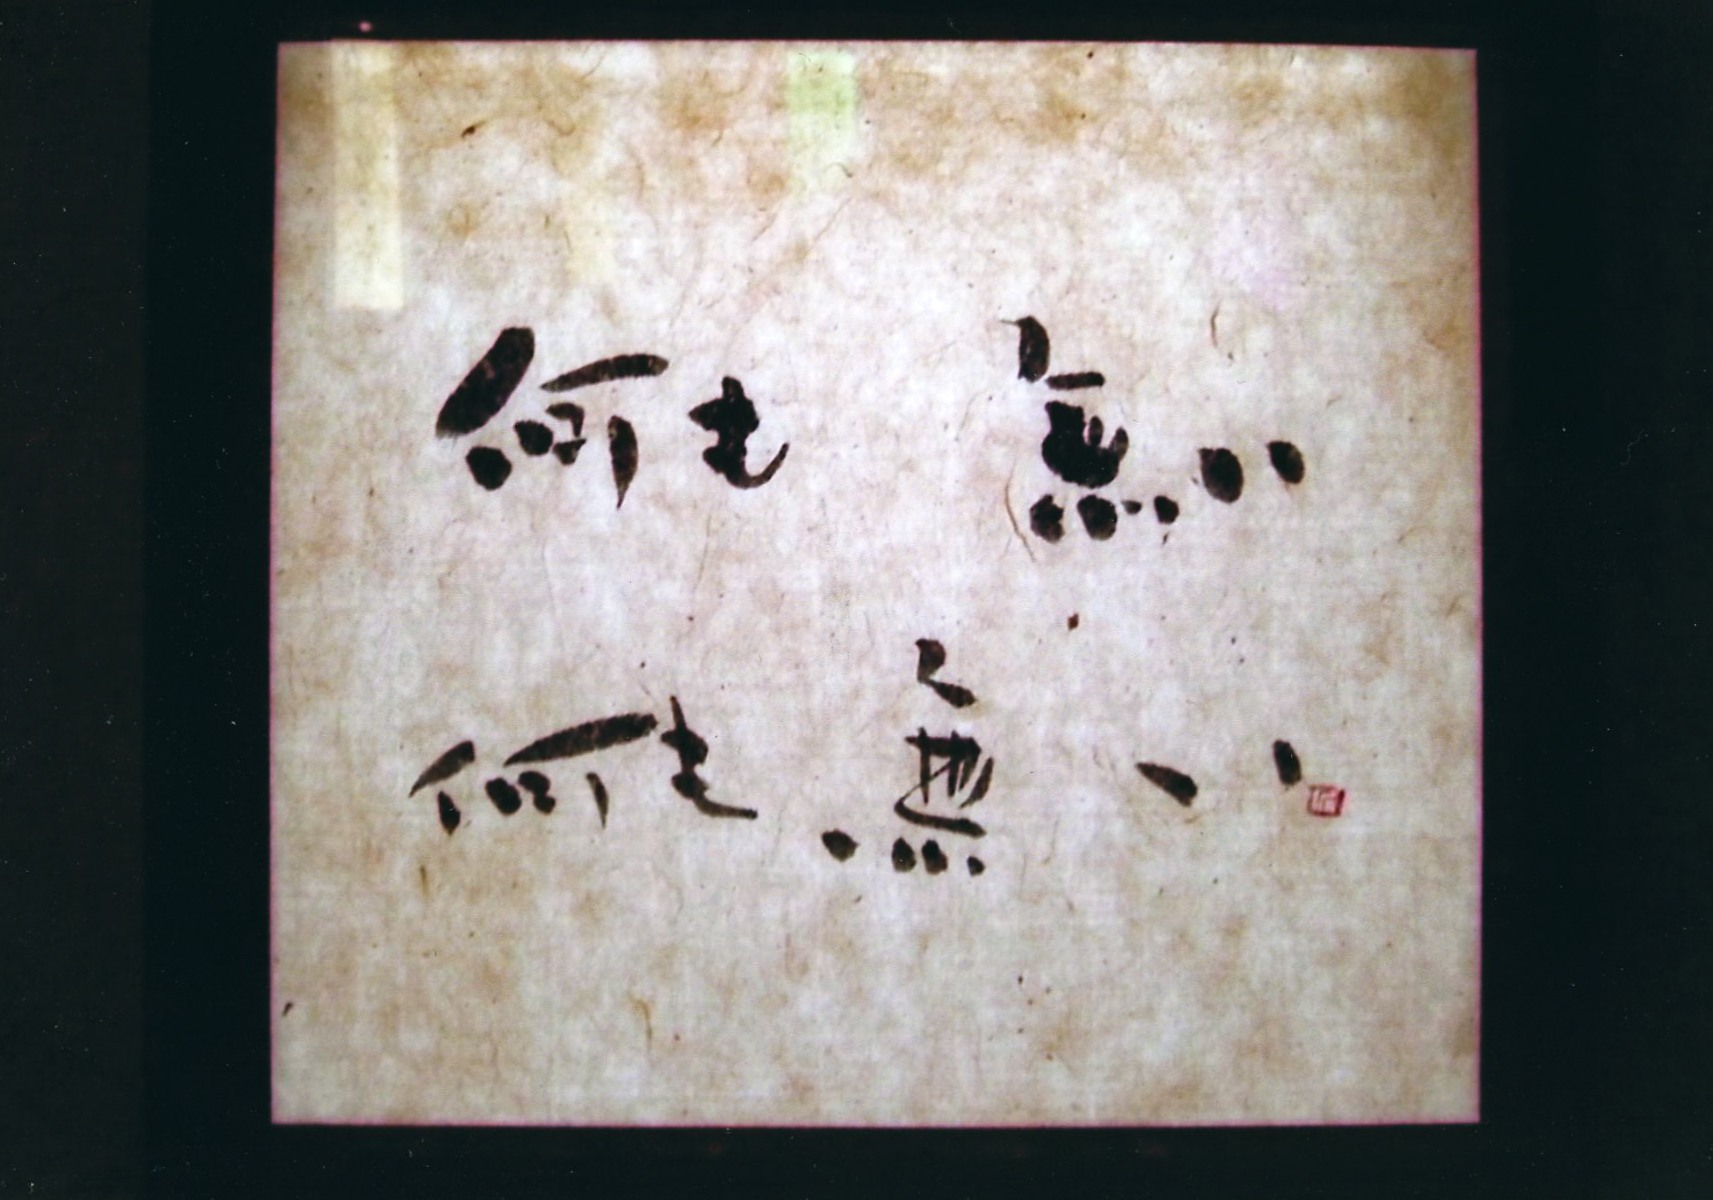 何も無い
何も無い